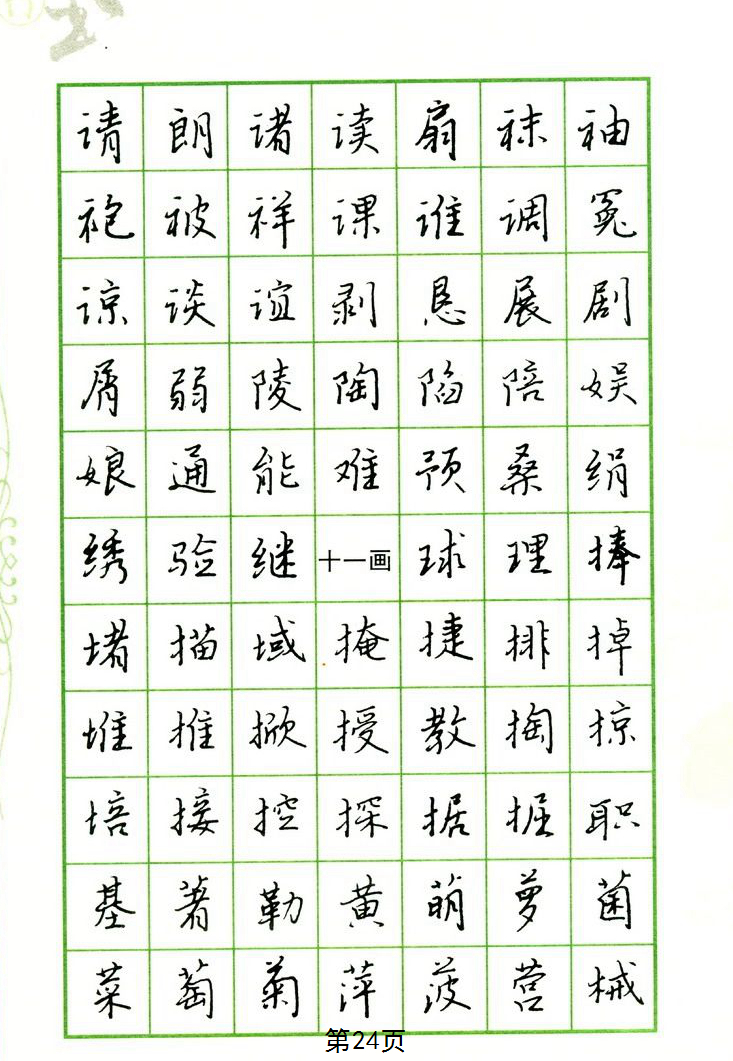 请朗诸读扇袜袖
袍被祥课谁调冤
谅谈谊剥恳展剧
屑弱陵陶陷陪娱
娘通能难预桑绢
绣验继十一画球理捧
堵描域掩捷排掉
堆推掀授教掏掠
培接控探据掘职
基著勒黄萌萝菌
菜萄菊萍菠营械
第24页